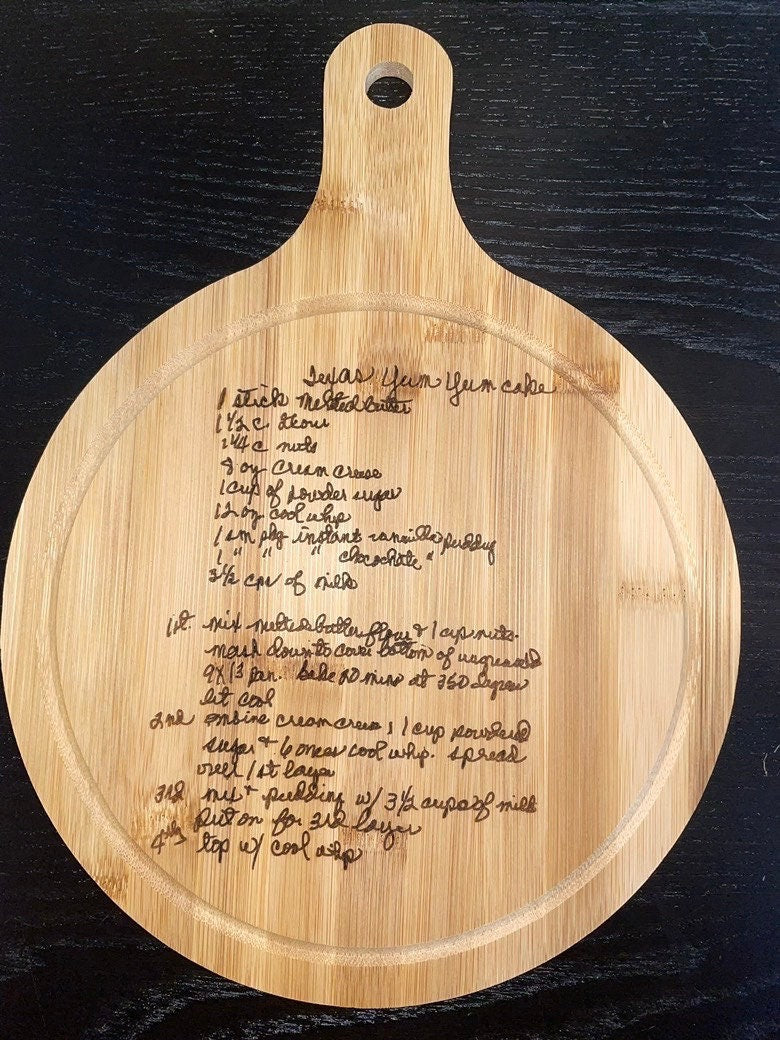 Texas Yum Yum cake
1 stick Melted butter
1 1/2 c flour
1 1/4 c nuts
8 oz cream creese
1 cup of powder sugar
12 oz cool whip
1 sm pkg instant vanilla pudding
1 " " " chocochate "
3 1/2 cps of milk
1st. mix melted butter flour & 1 cup nuts.
mash down to cover bottom of ungreased
9X13 pan. bake 20 mins at 350 degree
let cool
2nd combine cream creese, 1 cup powdered
sugar & 6 onces cool whp. spread
over 1st layer
3rd mix pudding w/ 3 1/2 cups of milk
Put on for 3rd layer
4th top w/ cool whp